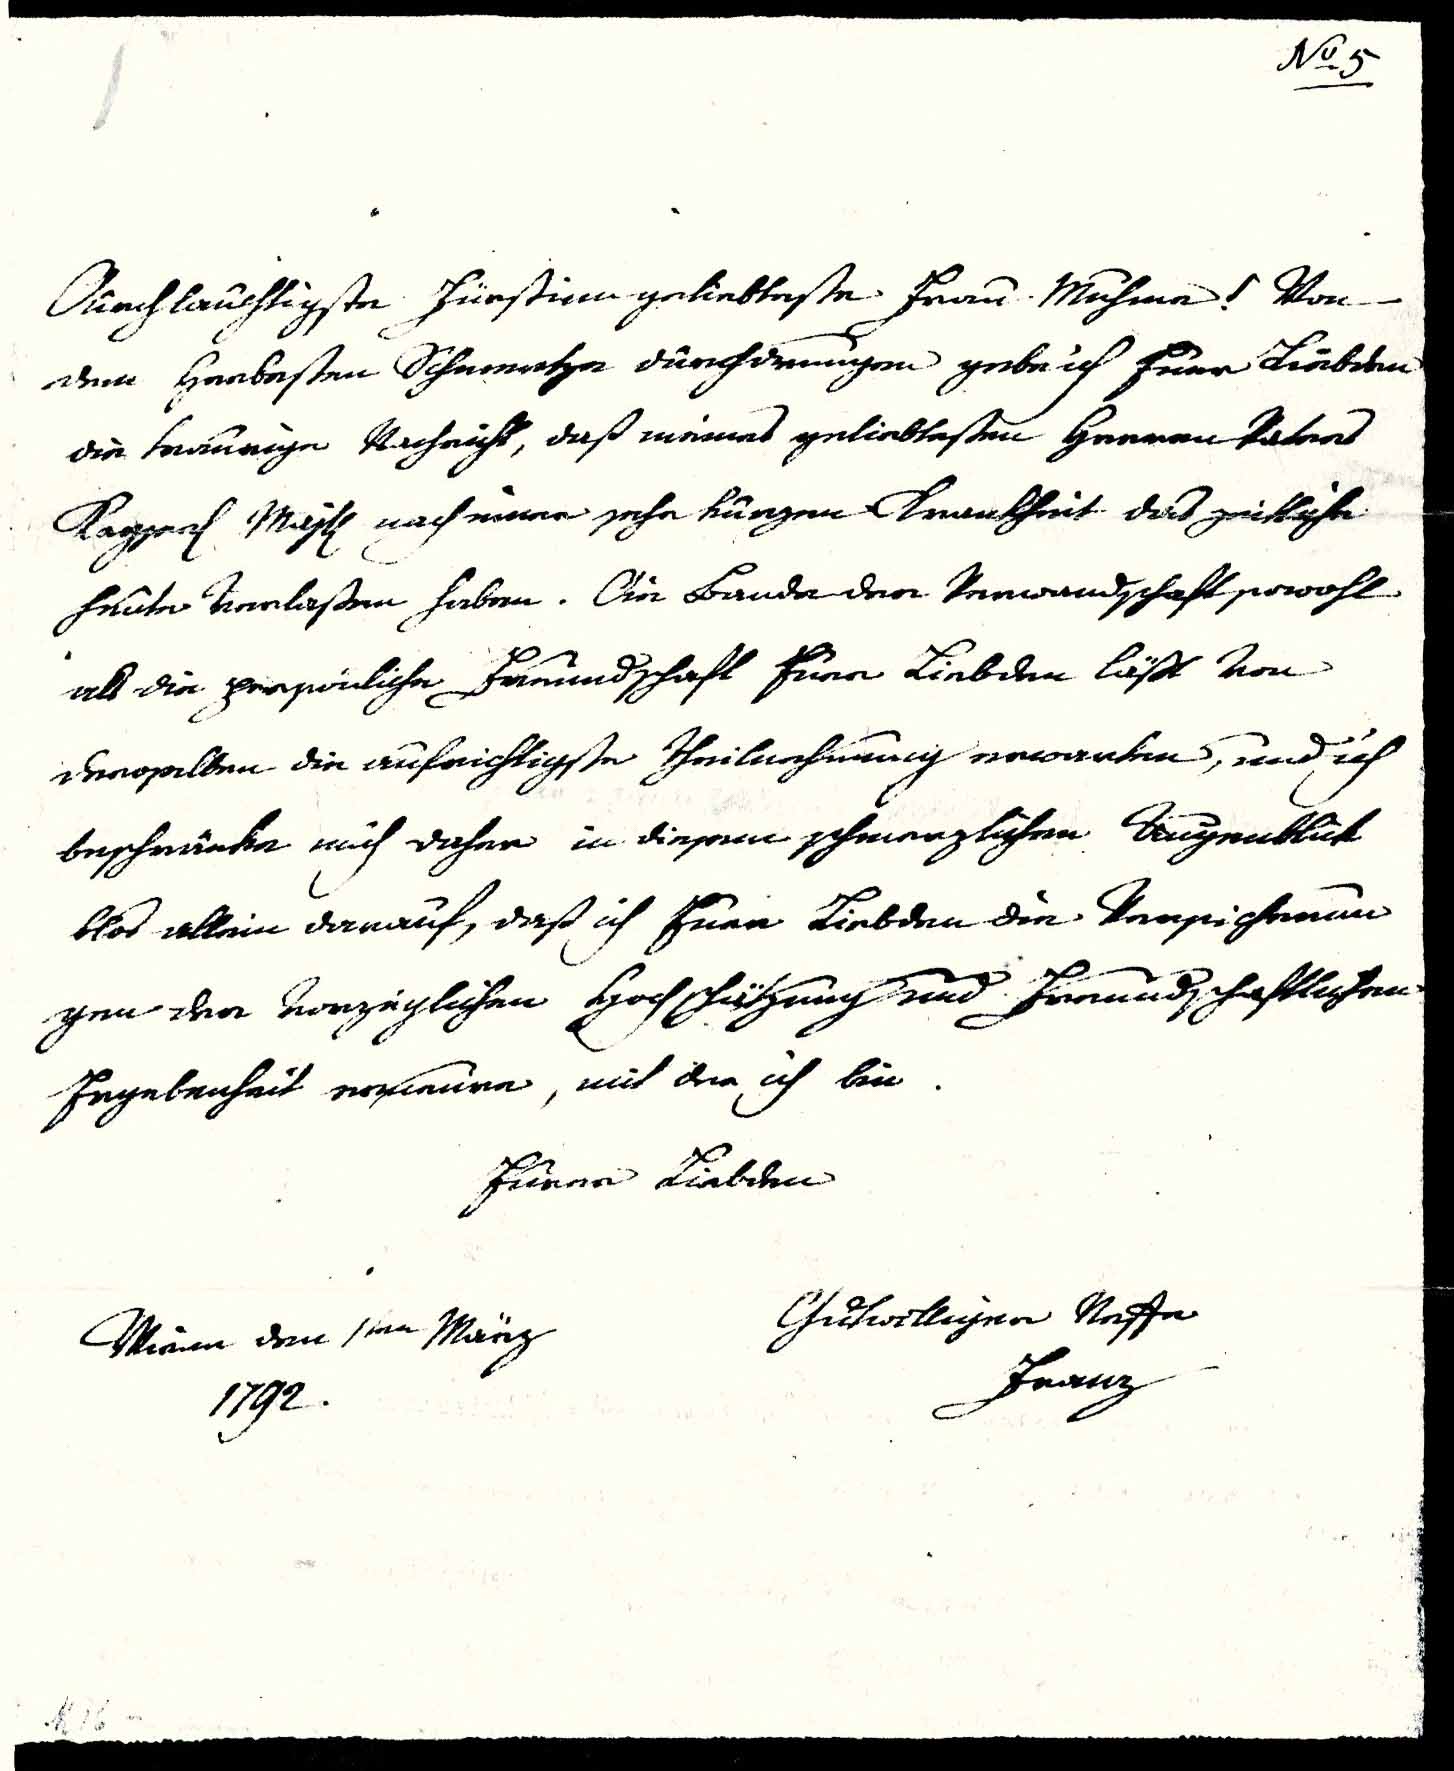 No 5
Durchlauchtigste Fürstinn geliebteste Frau Muhme! Von
dem Herbesten Schmertze durchdrungen gebe ich Euer Liebden
die traurige Nachricht, daß meines geliebtesten Herren Vaters
Kayserl Majtt nach einer sehr kurzen Krankheit das zeitliche
heute Verlaßen haben. Die Bande der Verwandschaft sowohl
als die persönliche Freundschaft Euer Liebden läßt von
derselben die aufrichtigste Theilnehmung erwarten, und ich
beschränke mich daher in diesem schmerzlichen Augenblick
blos allein darauf, daß ich Euer Liebden die Versicherun
gen der vorzüglichen Hochschätzung und Freundschaftlichen
Ergebenheit erneuere, mit der ich bin.
Euerer Liebden
Gutwilliger Neffe
Franz
Wienn den 1ten März
1792.